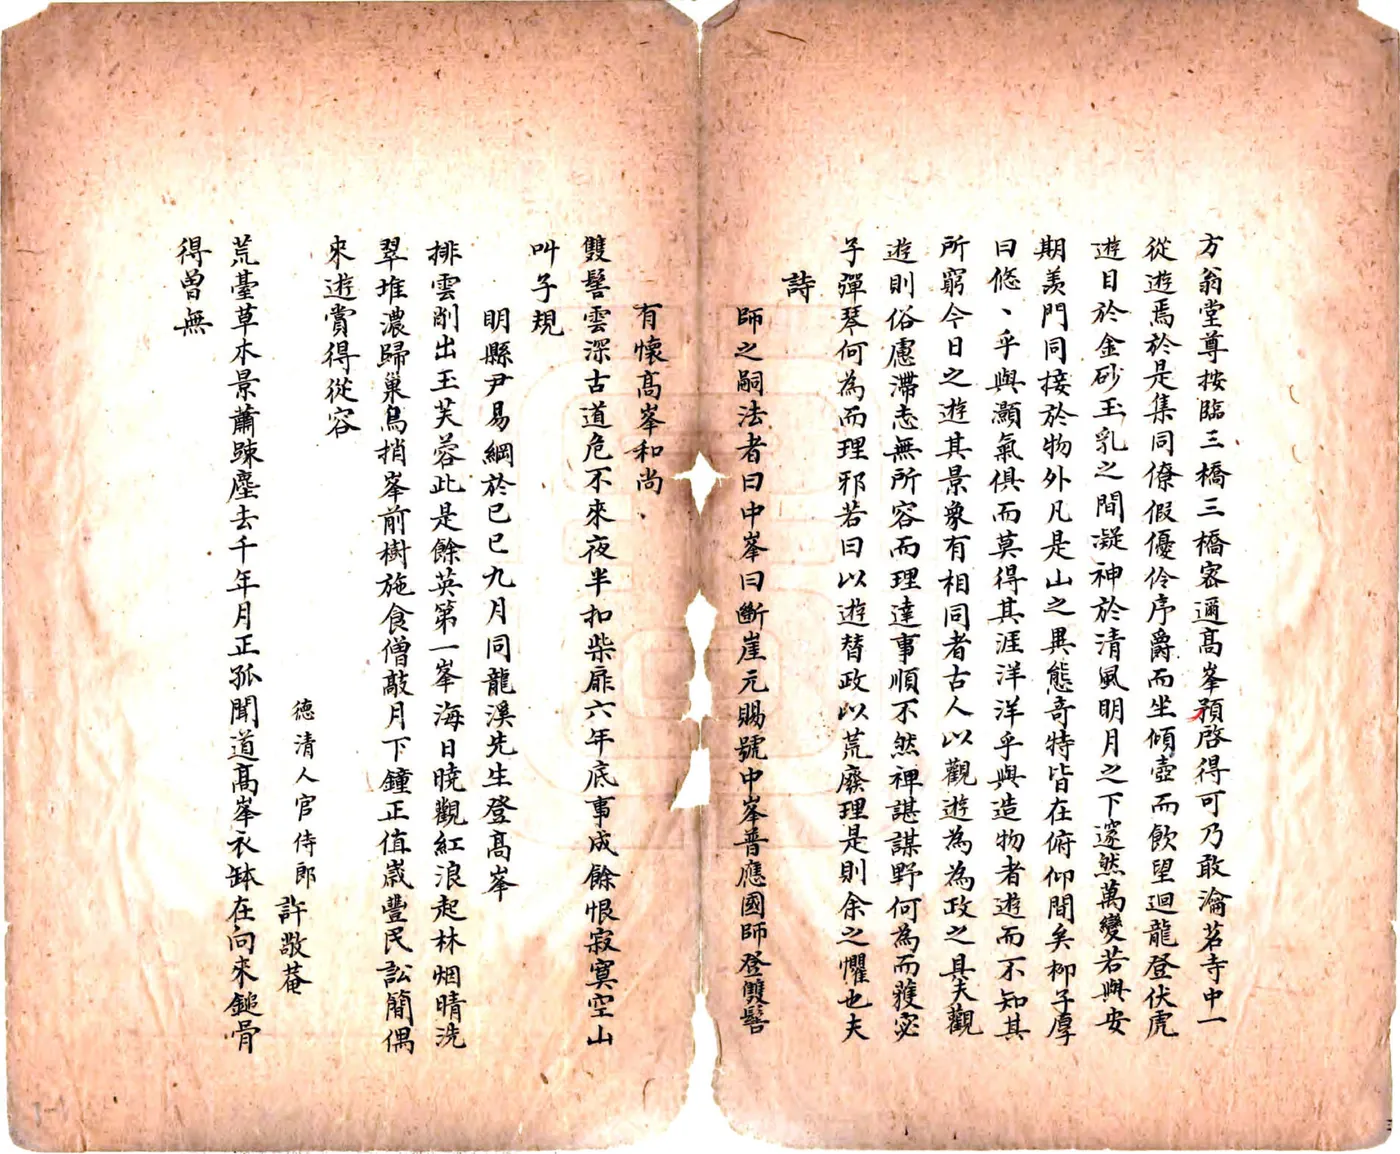 方翁堂尊按臨三橋三橋密邇髙峯預啓得可乃敢瀹茗寺中一
從遊焉於是集同僚假優伶序爵而坐傾壺而飲望迴龍登伏虎
遊目於金砂玉乳之間凝神於清風明月之下邃然萬變若與安
期羨門同接於物外凡是山之異態奇特皆在俯仰間矣柳子厚
曰悠、乎與顥氣俱而莫得其涯洋洋乎與造物者遊而不知其
所窮今日之遊其景象有相同者古人以觀遊為為政之具夫觀
遊則俗慮滯志無所容而理達事順不然裨諶謀野何為而獲宓
子彈琴何為而理邪若曰以遊替政以荒廢理是則余之懼也夫
詩
師之嗣法者曰中峯曰斷崖元賜號中峯普應國師登雙髻
有懷髙峯和尚、
雙髻雲深古道危不來夜半扣柴扉六年底事成餘恨寂寞空山
叫子規
明縣尹易綱於已巳九月同龍溪先生登髙峯
排雲削出玉芙蓉此是餘英第一峯海日曉觀紅浪起林烟晴洗
翠堆濃歸巢鳥捎峯前樹施食僧敲月下鐘正值歲豐民訟簡偶
來遊賞得從容
德清人官侍郎許敬菴
荒臺草木景蕭踈塵去千年月正孤聞道髙峯衣缽在向來鎚骨
得曾無